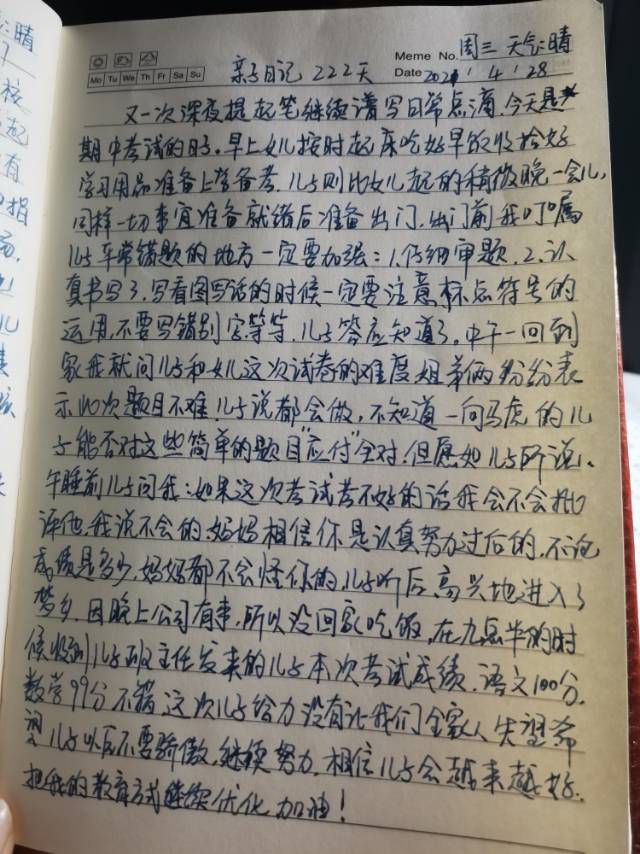 :晴
7
核
起
有
指
Mo Tu We Th Fr Sa Su
Meme No. 周三 天气:晴
亲子日记 222天
Date 2021 / 4 / 28
又一次深夜提起笔继续谱写日常点滴.今天是
期中考试的日子.早上女儿按时起床吃好早饭收拾好
学习用品准备上学备考.儿子则比女儿起的稍微晚一会儿,
同样一切事宜准备就绪后准备出门.出门前我叮嘱
儿子平常错题的地方一定要加强:1.仔细审题.2.认
真书写3.写看图写话的时候一定要注意标点符号的
运用,不要写错别字等等,儿子答应知道了.中午一回到
家我就问儿子和女儿这次试卷的难度姐弟俩纷纷表
示此次题目不难.儿子说都会做,不知道一向马虎的儿
子能否对这些简单的题目"应付"全对.但愿如儿子所说、
午睡前儿子问我:如果这次考试考不好的话我会不会批
评他.我说不会的,妈妈相信你是认真努力过后的,不论
成绩是多少,妈妈都不会怪你的,儿子听后高兴地进入了
梦乡.因晚上公司有事,所以没回家吃饭,在九点半的时
候收到儿子班主任发来的儿子本次考试成绩.语文100分.
数学99分不错这次儿子给力没有让我们全家人失望希
望儿子以后不要骄傲,继续努力.相信儿子会越来越好.
把我的教育方式继续优化加油!